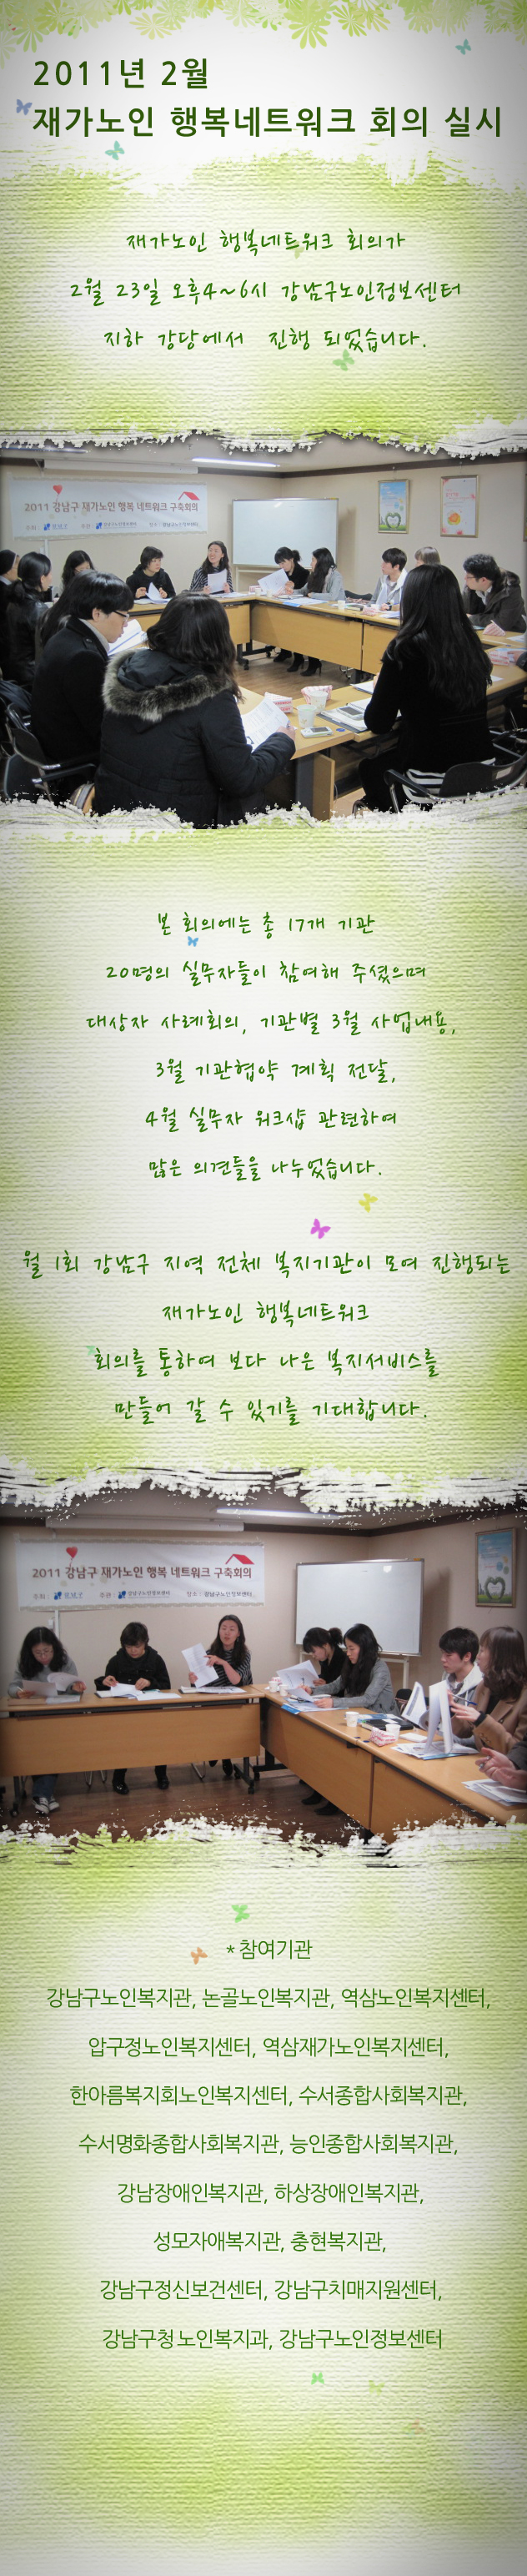 2011년 2월
재가노인 행복네트워크 회의 실시
재가노인 행복네트워크 회의가
2월 23일 오후4~6시 강남구노인정보센터
지하 강당에서 진행 되었습니다.
2011 강남구 재가노인 행복 네트워크 구축회의
본 회의에는 총 17개 기관
20명의 실무자들이 참여해 주셨으며
대상자 사례회의, 기관별 3월 사업내용,
3월 기관협약 계획 전달,
4월 실무자 워크샵 관련하여
많은 의견들을 나누었습니다.
월 1회 강남구 지역 전체 복지기관이 모여 진행되는
재가노인 행복네트워크
회의를 통하여 보다 나은 복지서비스를
만들어 갈 수 있기를 기대합니다.
2011 강남구 재가노인 행복 네트워크 구축회의
주최 : 강남구 주관 : 강남구노인정보센터 장소 : 강남구노인정보센터
* 참여기관
강남구노인복지관, 논골노인복지관, 역삼노인복지센터,
압구정노인복지센터, 역삼재가노인복지센터,
한아름복지회노인복지센터, 수서종합사회복지관,
수서명화종합사회복지관, 능인종합사회복지관,
강남장애인복지관, 하상장애인복지관,
성모자애복지관, 충현복지관,
강남구정신보건센터, 강남구치매지원센터,
강남구청 노인복지과, 강남구노인정보센터